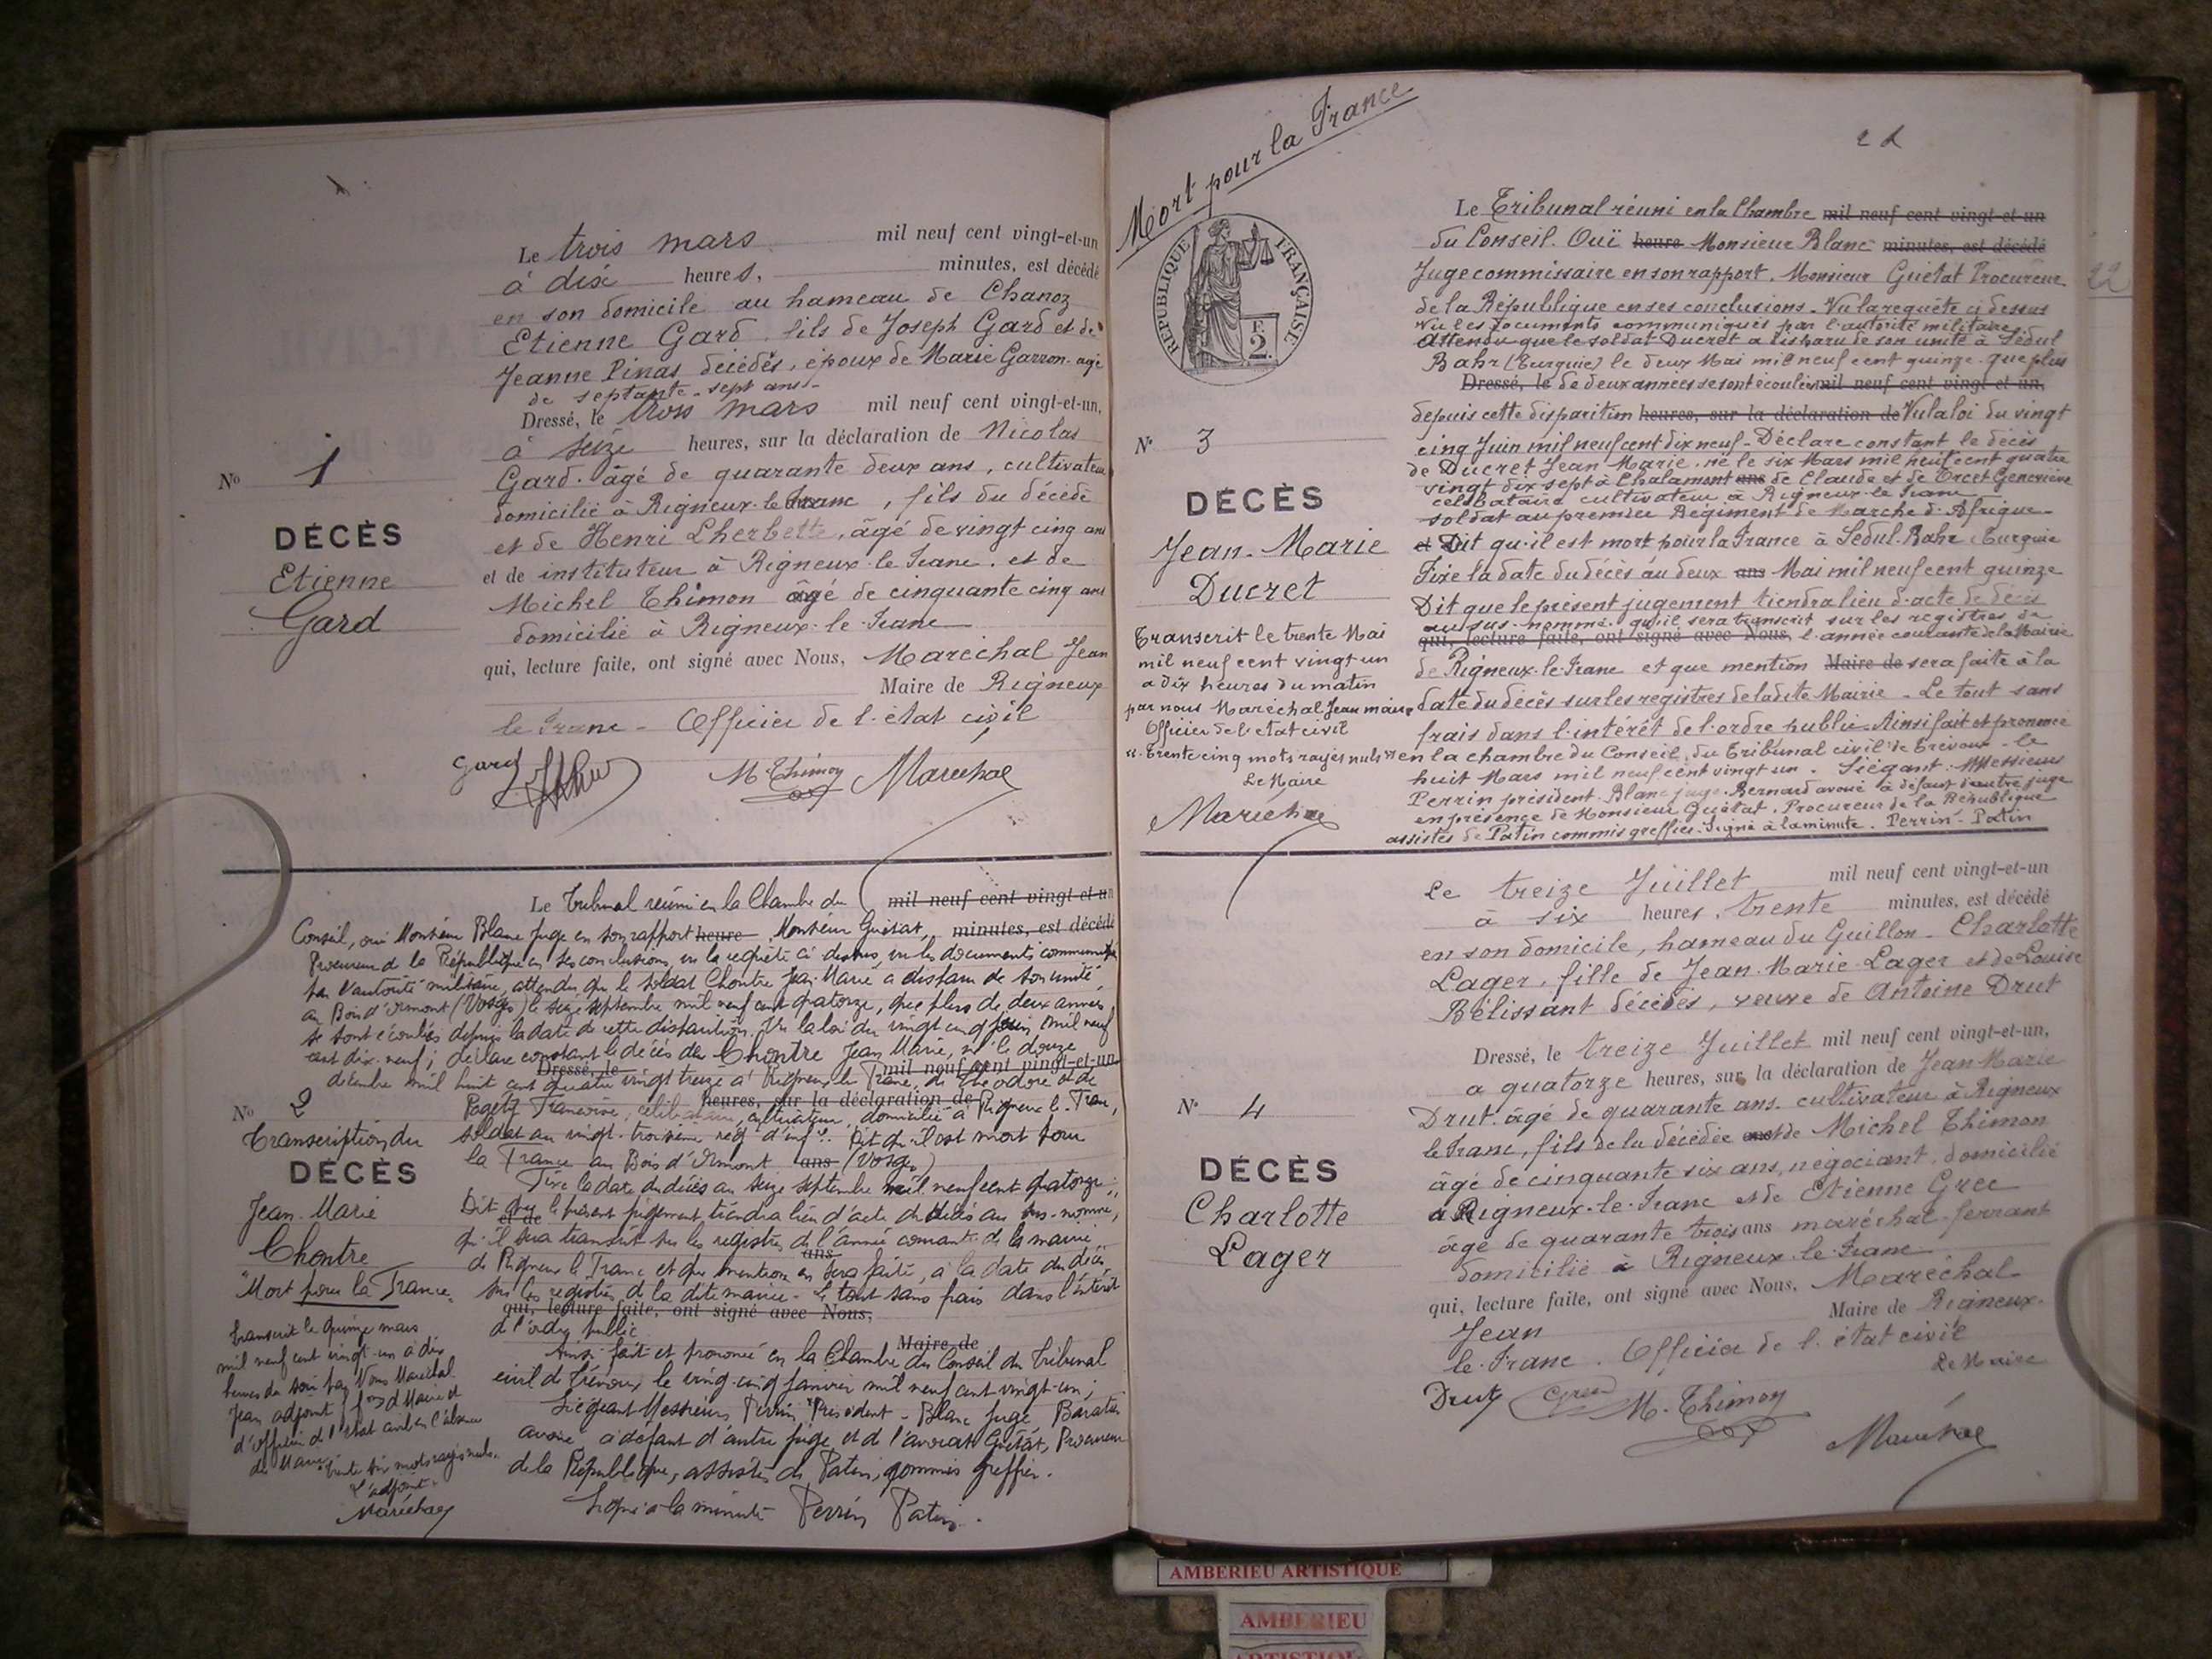 Le trois mars mil neuf cent vingt-et-un
à dix heures, minutes, est décédé
en son domicile au hameau de Chanoz
Etienne Gard fils de Joseph Gard et de
Jeanne Pinas décédés, époux de Marie Garron âgé
de septante-sept ans-
Dressé, le trois mars mil neuf cent vingt-et-un,
à seize heures, sur la déclaration de Nicolas
Gard. âgé de quarante deux ans, cultivateur
domicilié à Rigneux-le-Franc, fils du décédé
et de Henri Lherbette, âgé de vingt cinq ans
et de instituteur à Rigneux-le-Franc. et de
Michel Thimon âgé de cinquante cinq ans
domicilié à Rigneux-le-Franc
qui, lecture faite, ont signé avec Nous, Maréchal Jean
Maire de Rigneux
le Franc - Officier de l'état civil
Gard
M. Thimon Maréchal
No 1
DÉCÈS
Etienne
Gard
Le Tribunal réuni en la Chambre du mil neuf cent vingt-et-un
Conseil, ouï Monsieur Blanc Juge en son rapport heure Monsieur Guétat, minutes, est décédé
Procureur de la République en ses conclusions, vu la requête ci dessus, vu les documents communiqués
par l'autorité militaire, attendu que le soldat Chontre Jean Marie a disparu de son unité
au Bois d'Ormont (Vosges) le seize septembre mil neuf cent quatorze, que plus de deux années
se sont écoulées depuis la date de cette disparition. Vu la loi du vingt cinq juin mil neuf
cent dix-neuf; déclare constant le décès de Chontre Jean Marie, né le douze
Dressé, le mil neuf cent vingt-et-un
décembre mil huit cent quatre vingt treize à Rigneux le Franc, de Théodore et de
heures, sur la déclaration de
Françoise, célibataire, cultivateur, domicilié à Rigneux le Franc,
soldat au vingt-troisième rég. d'infie. Dit qu'il est mort pour
la France au Bois d'Ormont ans (Vosges)
Fixe la date du décès au seize septembre mil neuf cent quatorze.
Dit que le présent jugement tiendra lieu d'acte de décès au sus-nommé,
et de
qu'il sera transcrit sur les registres de l'année courante de la mairie
ans
de Rigneux le Franc et que mention en sera faite, à la date du décès,
sur les registres de la dite mairie - Le tout sans frais dans l'intérêt
qui, lecture faite, ont signé avec Nous,
de l'ordre public
Maire de
Ainsi fait et prononcé en la Chambre du Conseil du Tribunal
civil de Trévoux le vingt-cinq janvier mil neuf cent vingt-un;
Siégeant Messieurs Perrin Président - Blanc juge, Baratin
avoué à défaut d'autre juge et d'avocat Guétat, Procureur
de la République, assistés de Patin, commis greffier.
Signé à la minute Perrin Patin.
No 2
Transcription du
DÉCÈS
Jean-Marie
Chontre
"Mort pour la France"
Transcrit le quinze mars
mil neuf cent vingt-un à dix
heures du soir par Nous Maréchal
Jean adjoint de Maire et
d'officier de l'état civil en l'absence
du Maire. Trente six mots rayés nuls.
L'adjoint
Maréchal
Mort pour la France
RÉPUBLIQUE FRANÇAISE
F.
2.
22
Le Tribunal réuni en la Chambre mil neuf cent vingt-et-un
du Conseil. Ouï heure Monsieur Blanc minutes, est décédé
Juge commissaire en son rapport. Monsieur Guétat Procureur
de la République en ses conclusions - Vu la requête ci dessus
Vu les documents communiqués par l'autorité militaire.
Attendu que le soldat Ducret a disparu de son unité à Sédul
Bahr (Turquie) le deux Mai mil neuf cent quinze. que plus
Dressé, le de deux années se sont écoulées mil neuf cent vingt et un,
depuis cette disparition heures, sur la déclaration de Vu la loi du vingt
cinq Juin mil neuf cent dix neuf - Déclare constant le décès
de Ducret Jean Marie, né le six Mars mil neuf cent quatre
vingt dix sept à Chalamont ans de Claude et de Orcet Geneviève
célibataire cultivateur à Rigneux-le-Franc
soldat au premier Régiment de Marche d'Afrique-
et Dit qu'il est mort pour la France à Sedul-Bahr Turquie
Fixe la date du décès au deux ans Mai mil neuf cent quinze
Dit que le présent jugement tiendra lieu d'acte de décès
au sus-nommé. qu'il sera transcrit sur les registres de
qui, lecture faite, ont signé avec Nous, l'année courante de la Mairie
de Rigneux-le-Franc et que mention Maire de sera faite à la
date du décès sur les registres de ladite Mairie - Le tout sans
frais dans l'intérêt de l'ordre public. Ainsi fait et prononcé
en la chambre du Conseil du Tribunal civil de Trévoux - le
huit Mars mil neuf cent vingt un. Siégant. Messieurs
Perrin président. Blanc juge. Bernard avoué à défaut d'autre juge
en présence de Monsieur Guétat. Procureur de la République
assistés de Patin commis greffier. Signé à la minute. Perrin - Patin
No 3
DÉCÈS
Jean-Marie
Ducret
Transcrit le trente Mai
mil neuf cent vingt un
à dix heures du matin
par nous Maréchal Jean maire
Officier de l'etat civil
"Trente cinq mots rayés nuls"
Le Maire
Maréchal
Le treize Juillet mil neuf cent vingt-et-un
à six heures, trente minutes, est décédé
en son domicile, hameau du Guillon - Charlotte
Lager, fille de Jean-Marie Lager et de Louise
Bélissant décédés, veuve de Antoine Drut
Dressé, le treize Juillet mil neuf cent vingt-et-un,
a quatorze heures, sur la déclaration de Jean Marie
Drut. âgé de quarante ans. cultivateur à Rigneux
le Franc, fils de la décédée et de Michel Thimon
âgé de cinquante six ans, négociant, domicilié
à Rigneux-le-Franc et de Etienne Grec
âgé de quarante trois ans maréchal-ferrant
domicilié à Rigneux-le-Franc
qui, lecture faite, ont signé avec Nous, Maréchal
Jean Maire de Rigneux-
le-Franc. Officier de l'état civil
Le Maire
Drut Grec M. Thimon
Maréchal
No 4
DÉCÈS
Charlotte
Lager
22
AMBERIEU ARTISTIQUE
AMBERIEU
ARTISTIQUE